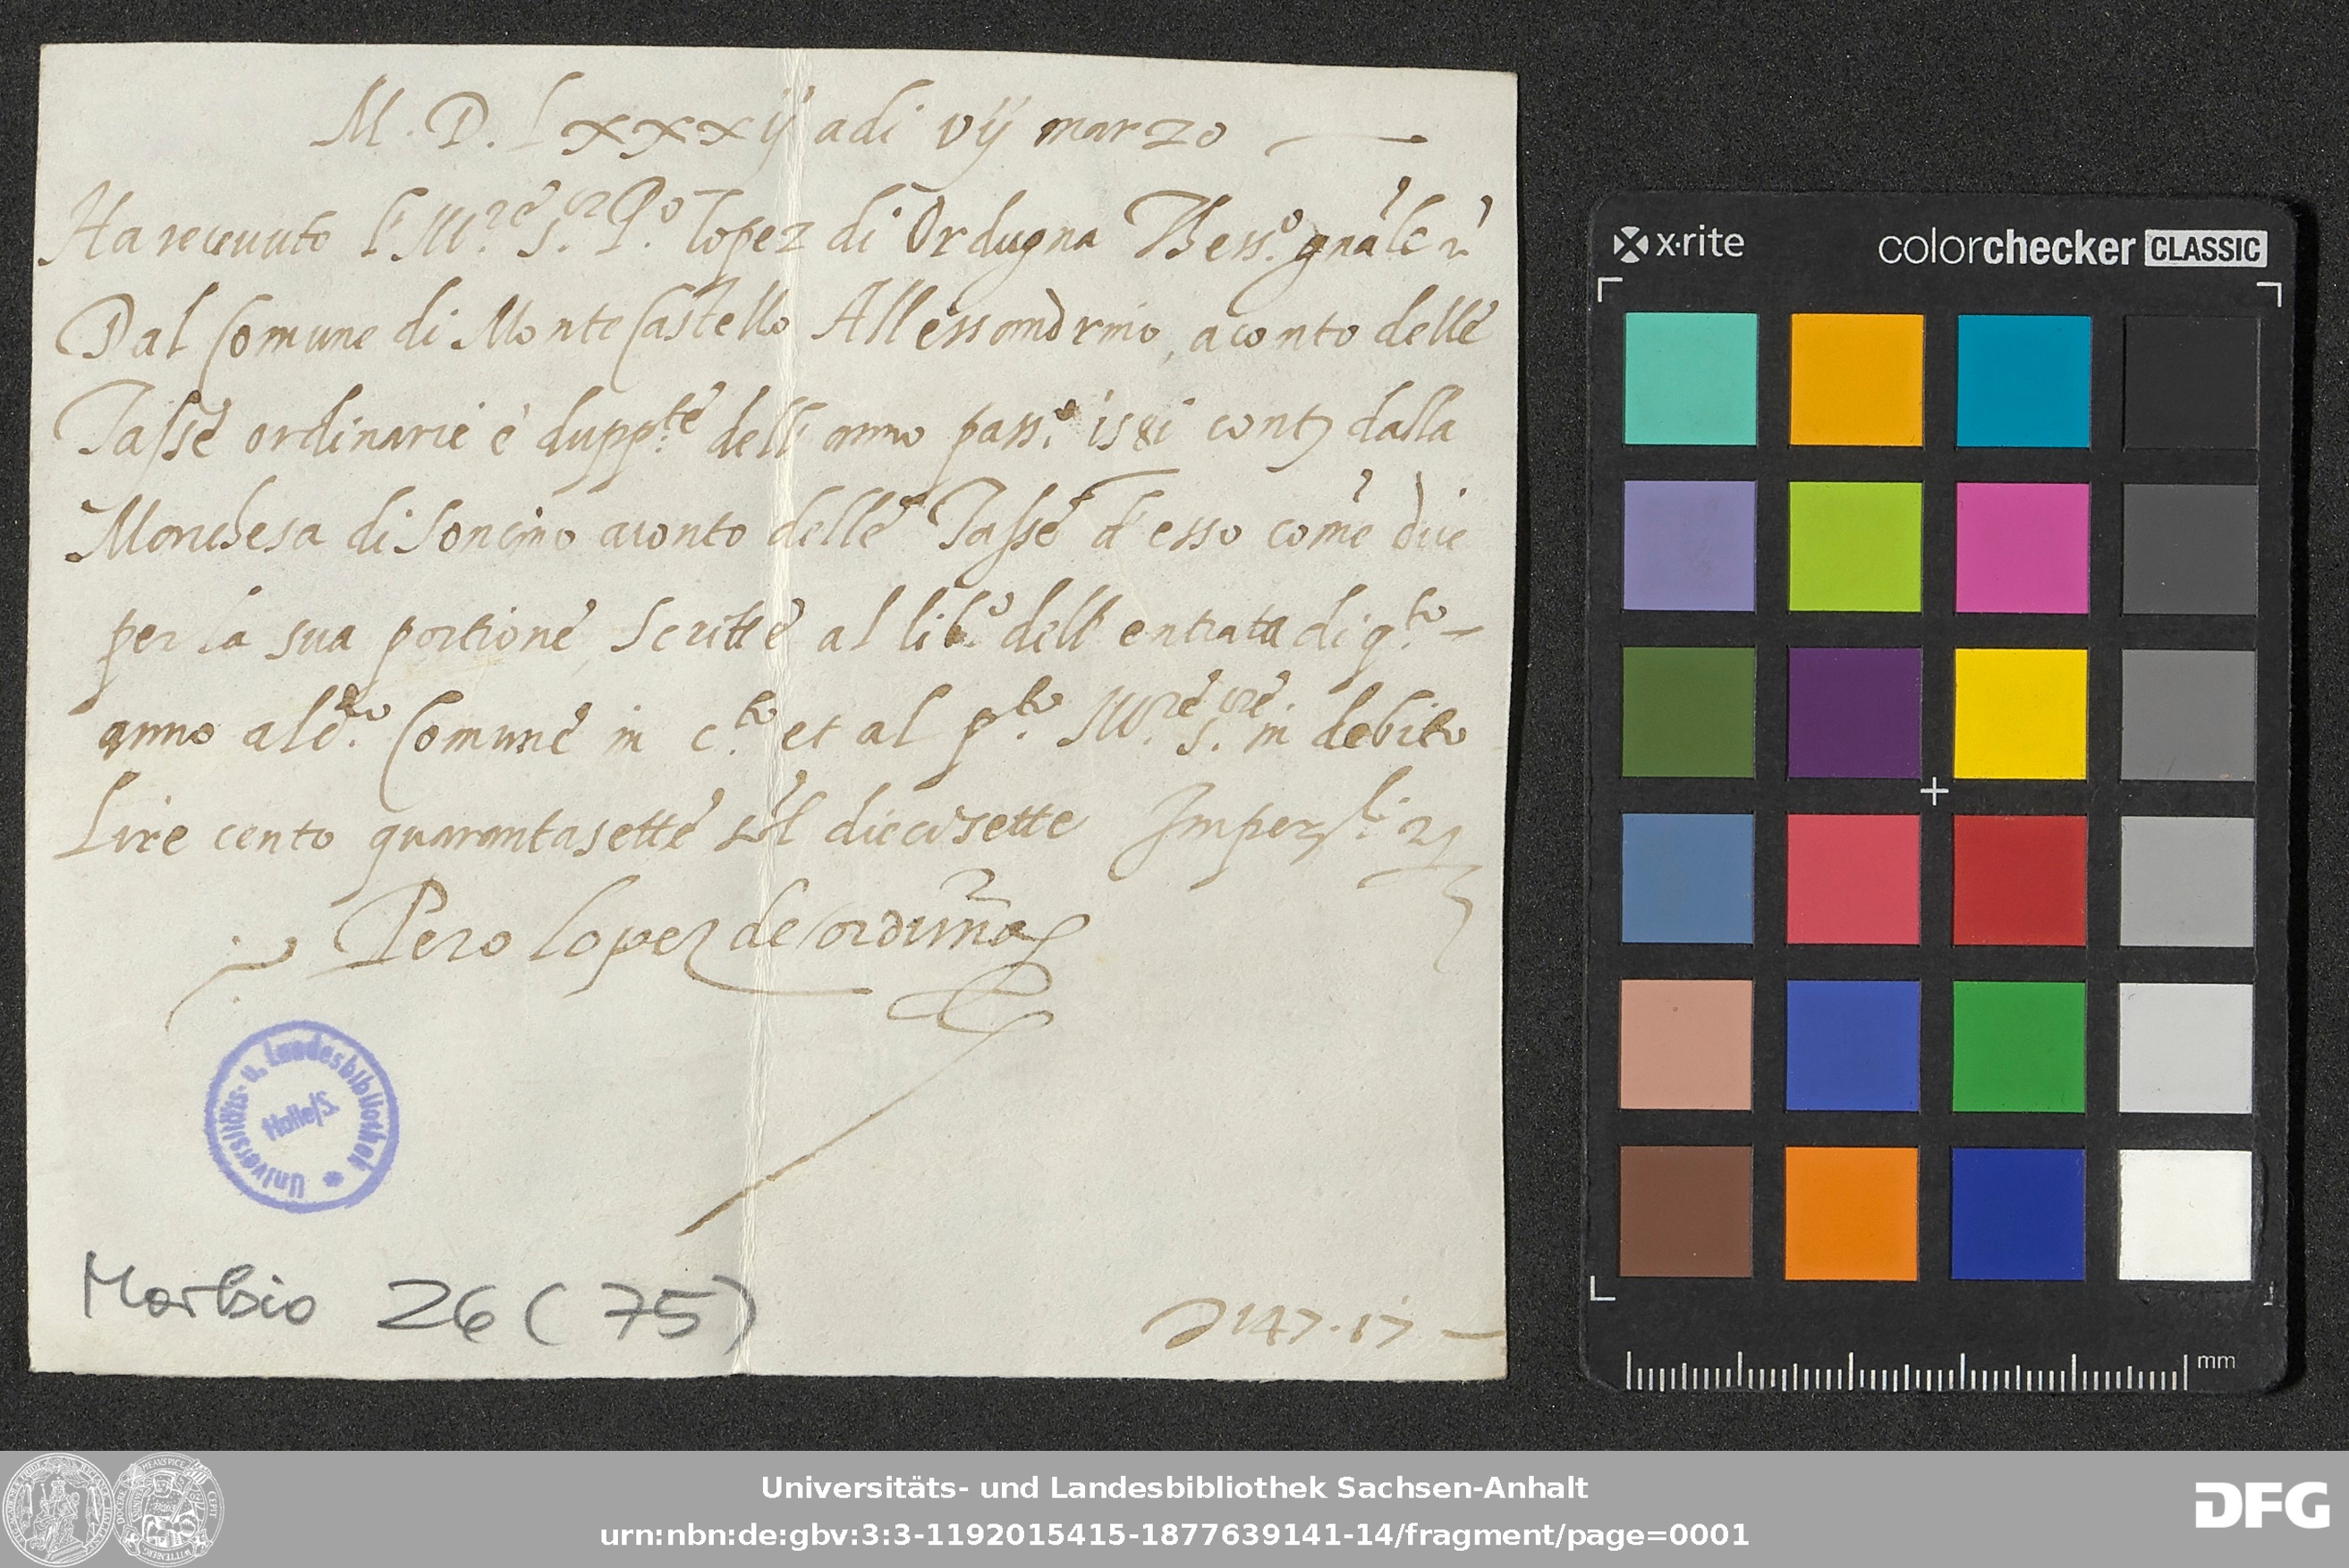 M. D. Lxxxij adi vij marzo
Ha receuuto l'Ill.re S.or P.o lopez di Ordugna Thess.o gnãle
Dal Comune di Monte Castello Allessandrino, aconto delle
Tasse ordinarie é dupp.te dell' anno pass.o 1581 cont dalla
Marchesa di Soncino aconto delle Tasse d'esso come dice
per la sua portione, Scritte al lib.o dell' entrata di q.to
anno al d.to Comune in c.to et al p.to Ill.re S.re in debito
Lire cento quarantasette diecisette Imper.li
Pero lopez de orduña
Universitäts- u. Landesbibliothek
Halle/S.
Morbio 26 (75)
147.17
x·rite
colorchecker CLASSIC
mm
Universitäts- und Landesbibliothek Sachsen-Anhalt
urn:nbn:de:gbv:3:3-1192015415-1877639141-14/fragment/page=0001
DFG